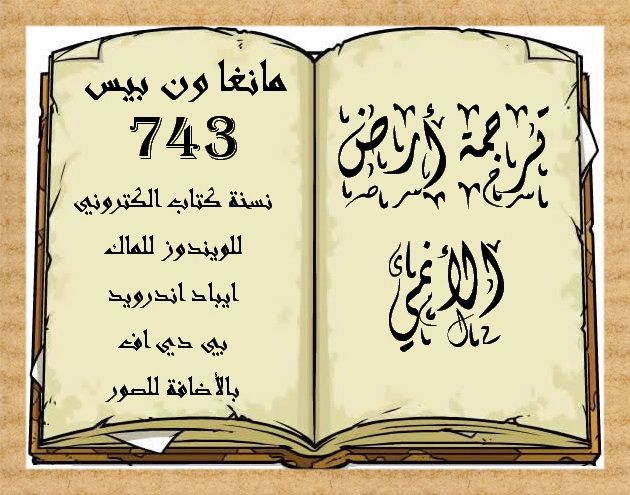 ترجمة أرض
الأنمي
مانغا ون بيس
743
نسخة كتاب الكتروني
للويندوز للماك
ايباد اندرويد
بي دي اف
بالأضافة للصور